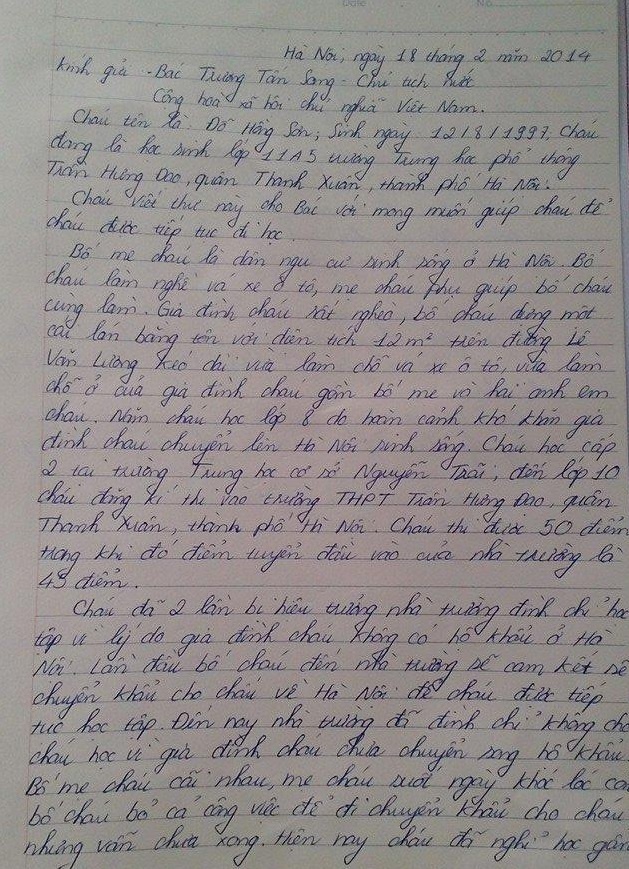 Date No
Hà Nội, ngày 18 tháng 2 năm 2014
Kính gửi - Bác Trương Tấn Sang - Chủ tịch nước
Cộng hoà xã hội chủ nghĩa Việt Nam.
Cháu tên là Đỗ Hồng Sơn; Sinh ngày: 12/8/1997. Cháu
đang là học sinh lớp 11A5 trường Trung học phổ thông
Trần Hưng Đạo, quận Thanh Xuân, thành phố Hà Nội.
Cháu viết thư này cho Bác với mong muốn giúp cháu để
cháu được tiếp tục đi học.
Bố mẹ cháu là dân ngụ cư sinh sống ở Hà Nội. Bố
cháu làm nghề vá xe ô tô, mẹ cháu phụ giúp bố cháu
cùng làm. Gia đình cháu rất nghèo, bố cháu dựng một
cái lán bằng tôn với diện tích 12m² trên đường Lê
Văn Lương kéo dài vừa làm chỗ vá xe ô tô, vừa làm
chỗ ở của gia đình cháu gồm bố mẹ và hai anh em
cháu. Năm cháu học lớp 8 do hoàn cảnh khó khăn gia
đình cháu chuyển lên Hà Nội sinh sống. Cháu học cấp
2 tại trường Trung học cơ sở Nguyễn Trãi, đến lớp 10
cháu đăng kí thi vào trường THPT Trần Hưng Đạo, quận
Thanh Xuân, thành phố Hà Nội. Cháu thi được 50 điểm
trong khi đó điểm tuyển đầu vào của nhà trường là
43 điểm.
Cháu đã 2 lần bị hiệu trưởng nhà trường đình chỉ học
tập vì lý do gia đình cháu không có hộ khẩu ở Hà
Nội. Lần đầu bố cháu đến nhà trường sẽ cam kết sẽ
chuyển khẩu cho cháu về Hà Nội để cháu được tiếp
tục học tập. Đến nay nhà trường đã đình chỉ không cho
cháu học vì gia đình cháu chưa chuyển song hộ khẩu.
Bố mẹ cháu cãi nhau, mẹ cháu suốt ngày khóc lóc còn
bố cháu bỏ cả công việc để đi chuyển khẩu cho cháu
nhưng vẫn chưa xong. Hiện nay cháu đã nghỉ học gần